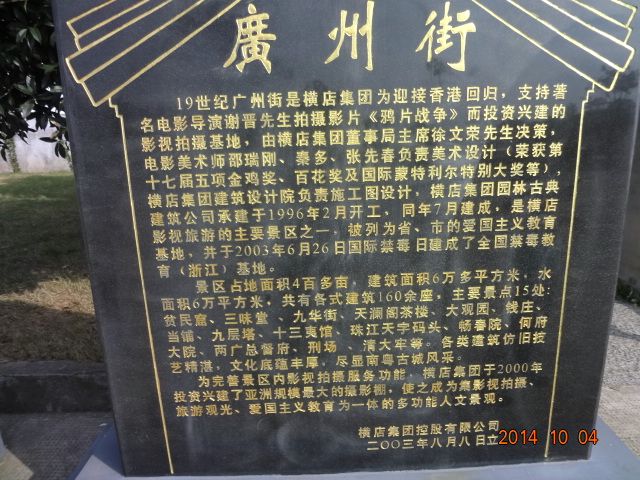 廣州街
19世纪广州街是横店集团为迎接香港回归，支持著
名电影导演谢晋先生拍摄影片《鸦片战争》而投资兴建的
影视拍摄基地，由横店集团董事局主席徐文荣先生决策，
电影美术师邵瑞刚、秦多、张先春负责美术设计（荣获第
十七届五项金鸡奖、百花奖及国际蒙特利尔特别大奖等），
横店集团建筑设计院负责施工图设计，横店集团园林古典
建筑公司承建于1996年2月开工，同年7月建成，是横店
影视旅游的主要景区之一，被列为省、市的爱国主义教育
基地，并于2003年6月26日国际禁毒日建成了全国禁毒教
育（浙江）基地。
景区占地面积4百多亩，建筑面积6万多平方米，水
面积6万平方米，共有各式建筑160余座，主要景点15处：
贫民窟、三味堂、九华街、天澜阁茶楼、大观园、钱庄、
当铺、九层塔、十三夷馆、珠江天字码头、畅春院、何府
大院、两广总督府、刑场、清大牢等。各类建筑仿旧技
艺精湛，文化底蕴丰厚，尽显南粤古城风采。
为完善景区内影视拍摄服务功能，横店集团于2000年
投资兴建了亚洲规模最大的摄影棚，使之成为集影视拍摄、
旅游观光、爱国主义教育为一体的多功能人文景观。
横店集团控股有限公司
二〇〇三年八月八日立
2014 10 04